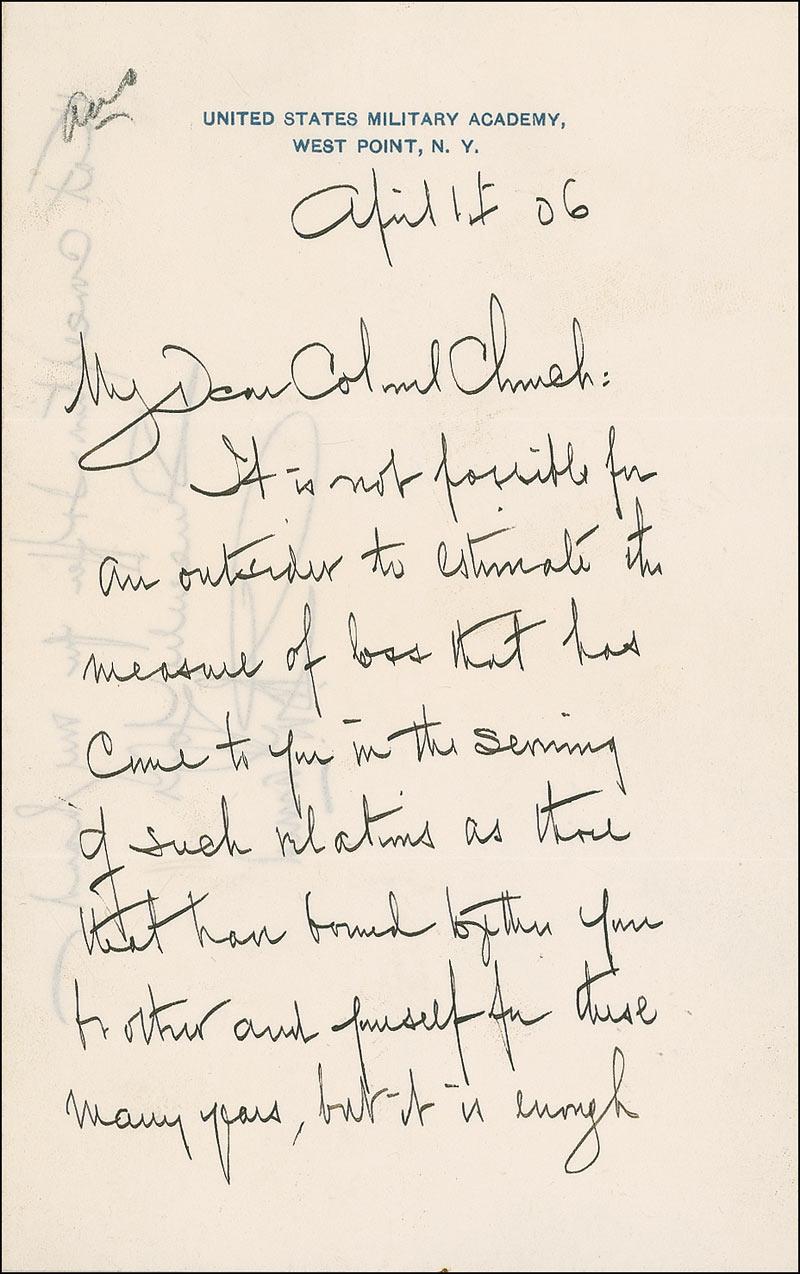 Ans
UNITED STATES MILITARY ACADEMY,
WEST POINT, N. Y.
April 1st 06
My Dear Colonel Church:
It is not possible for
an outsider to estimate the
measure of loss that has
come to you in the serving
of such relations as those
that have bound together your
brother and yourself for these
many years, but it is enough